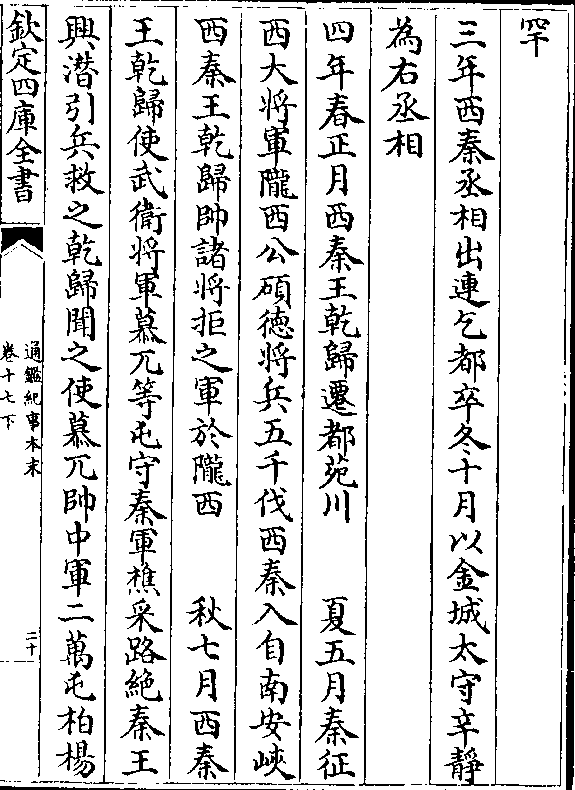 罕
三年西秦丞相出連乞都卒冬十月以金城太守辛靜
為右丞相
四年春正月西秦王乾歸遷都苑川　　夏五月秦征
西大將軍隴西公碩徳將兵五千伐西秦入自南安峽
西秦王乾歸帥諸將拒之軍於隴西　　秋七月西秦
王乾歸使武衛將軍慕兀等屯守秦軍樵采路絶秦王
興潛引兵救之乾歸聞之使慕兀帥中軍二萬屯柏楊
欽定四庫全書
通鑑紀事本末
卷十七下
二十